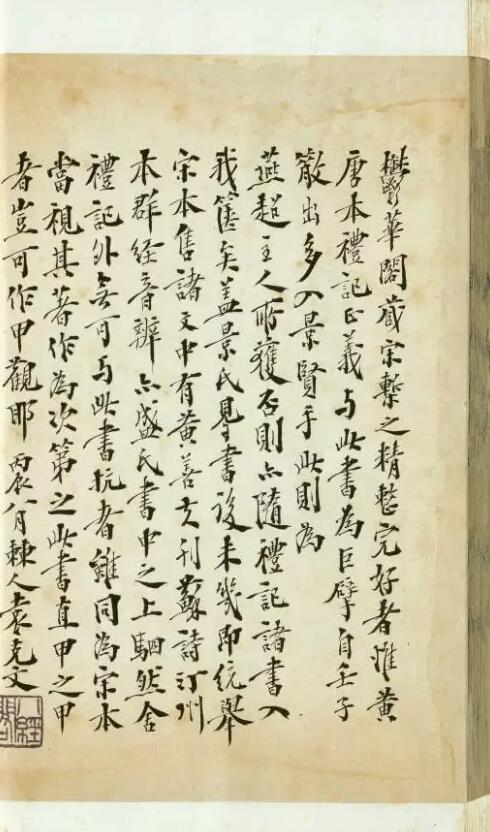 鬱華閣藏宋槧之精整完好者惟黃
唐本禮記正義与此書為巨擘自壬子
散出多入景賢手此則為
燕超主人所獲否則亦隨禮記諸書入
我篋矣盖景氏㝵書後未幾即統舉
宋本售諸文中有黃善夫刊蘇詩汀州
本群经音辨亦盛氏書中之上駟然舍
禮記外无可与此書抗者雖同為宋本
當視其著作為次第之此書直甲之甲
者豈可作甲觀耶 丙辰八月棘人袁克文
八經閣